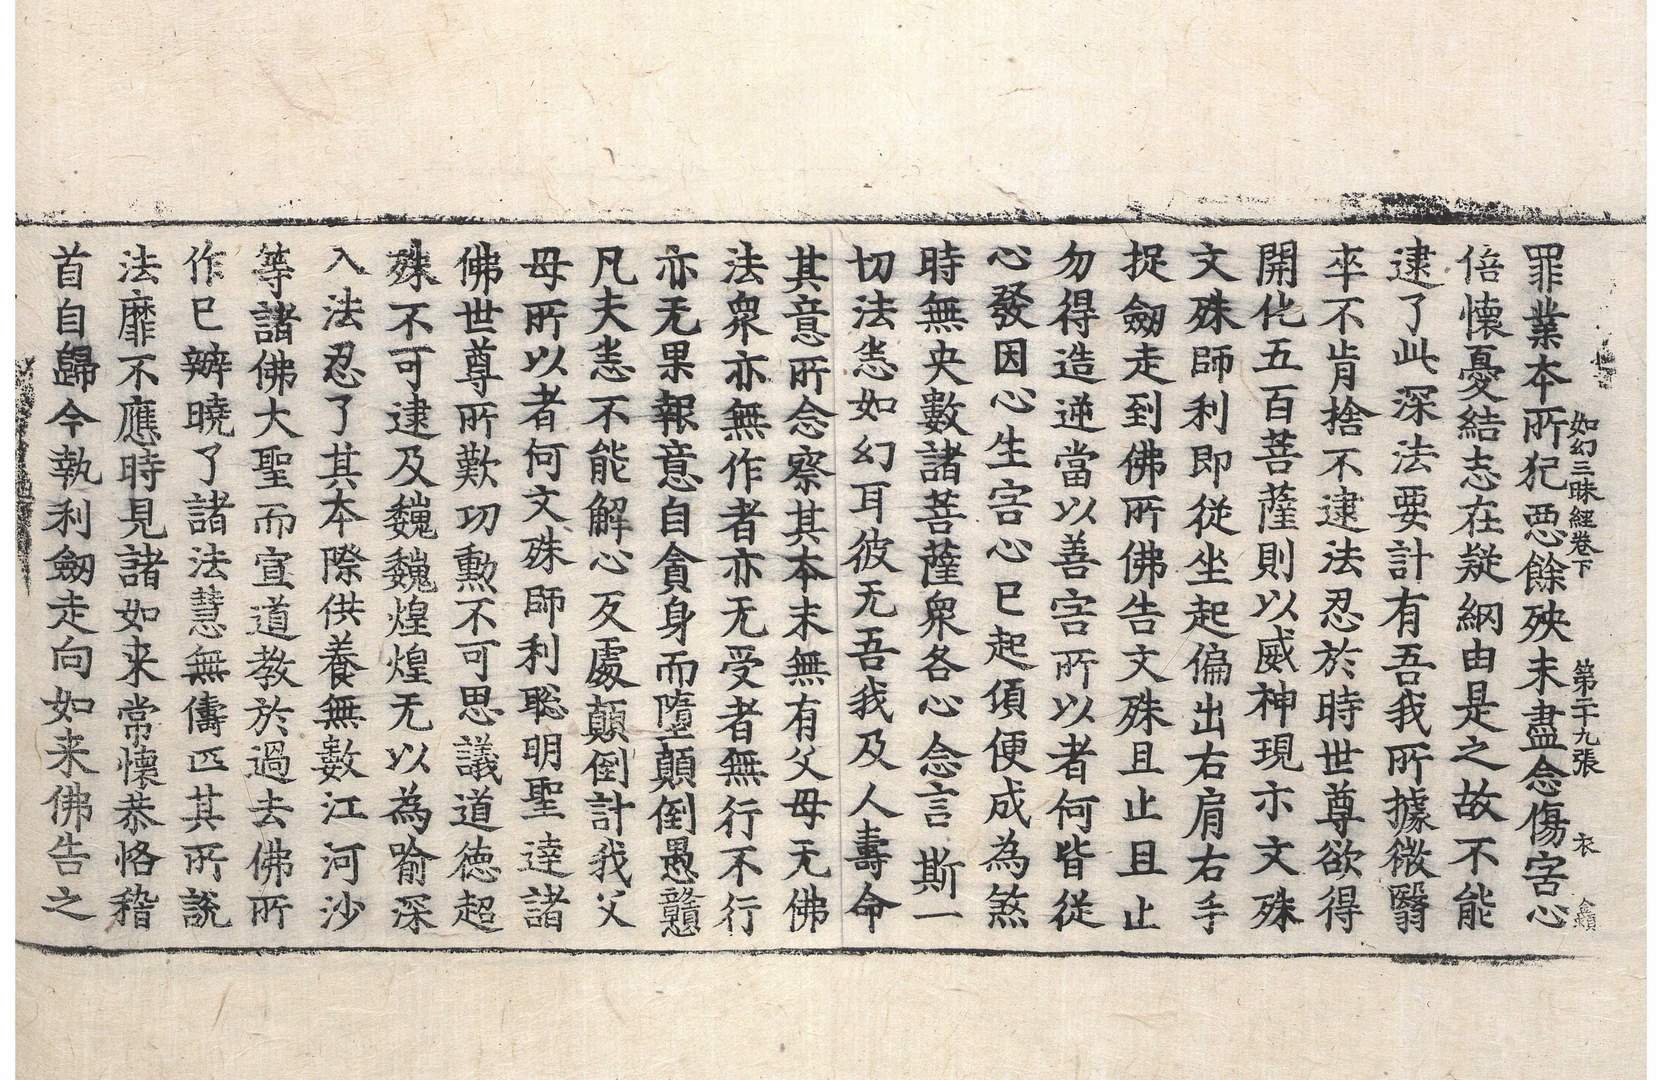 罪業本所犯惡餘殃未盡念傷害心
如幻三昧經卷下 第二十九張 衣
倍懷憂結志在疑網由是之故不能
逮了此深法要計有吾我所據微翳
卒不肯捨不逮法忍於時世尊欲得
開化五百菩薩則以威神現示文殊
文殊師利即從坐起偏出右肩右手
捉劒走到佛所佛告文殊且止且止
勿得造逆當以善害所以者何皆從
心發因心生害心已起頃便成為煞
時無央數諸菩薩衆各心念言斯一
切法恙如幻耳彼无吾我及人壽命
其意所念察其本末無有父母无佛
法衆亦無作者亦无受者無行不行
亦无果報意自貪身而墮顛倒愚戇
凡夫恙不能解心反處顛倒計我父
母所以者何文殊師利聡明聖達諸
佛世尊所歎功勳不可思議道德超
殊不可逮及巍巍煌煌无以為喻深
入法忍了其本際供養無數江河沙
等諸佛大聖而宣道教於過去佛所
作已辦曉了諸法慧無儔匹其所說
法靡不應時見諸如来常懷恭恪稽
首自歸今執利劒走向如来佛告之